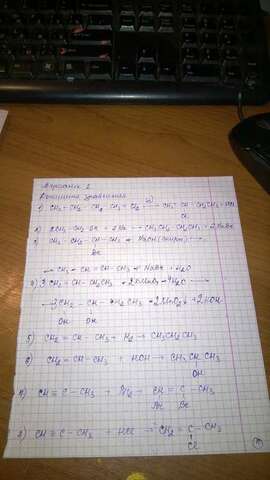 Вариант 2
уравнения
1) CH3 - CH2 - CH2 - CH3 + Cl2 → CH3 - CH - CH2CH3 + HCl
Cl
2) 2CH3 - CH2Br + 2Na → CH3CH2 CH2CH3 + 2NaBr
3) CH3 - CH2 - CH - CH3 + NaOH (спирт) →
Br
→ CH3 - CH = CH - CH3 + NaBr + H2O
4) 3CH2 = CH - CH3 + 2KMnO4 + 4H2O →
→ 3CH2 - CH - CH3 + 2MnO2↓ + 2KOH
OH OH
5) CH2 = CH - CH3 + H2 → CH3CH2CH3
6) CH2 = CH - CH3 + HOH → CH3 CH CH3
OH
CH ≡ C - CH3 + Br2 → CH = C - CH3
Br Br
CH ≡ C - CH3 + HCl → CH2 = C - CH3
Cl